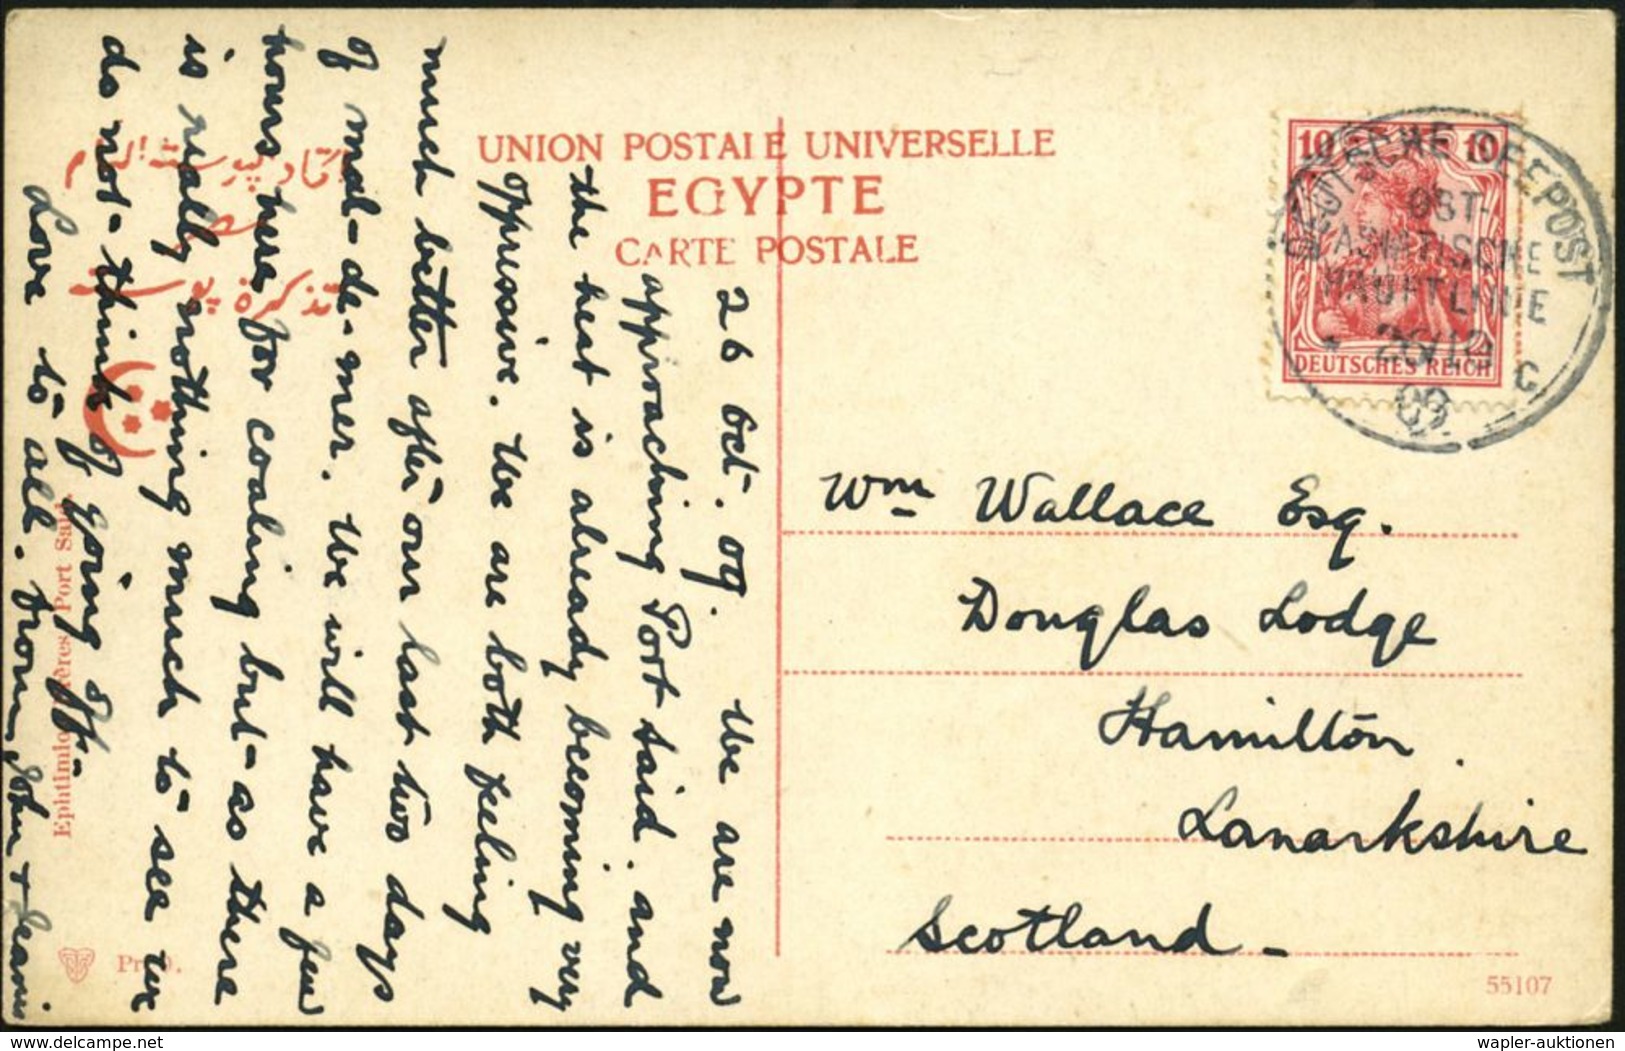 UNION POSTALE UNIVERSELLE
EGYPTE
CARTE POSTALE
26 Oct. 09. We are now
approaching Port Said. and
the heat is already becoming very
oppressive. We are both feeling
much better after our last two days
of mal-de-mer. We will have a few
hours here for coaling but as there
is really nothing much to see we
do not think of going off.
Love to all. from John + Jeanie
Wm Wallace Esq.
Douglas Lodge
Hamilton.
Lanarkshire
Scotland -
10 10
DEUTSCHES REICH
DEUTSCHE SEEPOST
OST-
ASIATISCHE
HAUPTLINIE
C
09
Port Said
55107
delcampe.net
wapler-auktionen